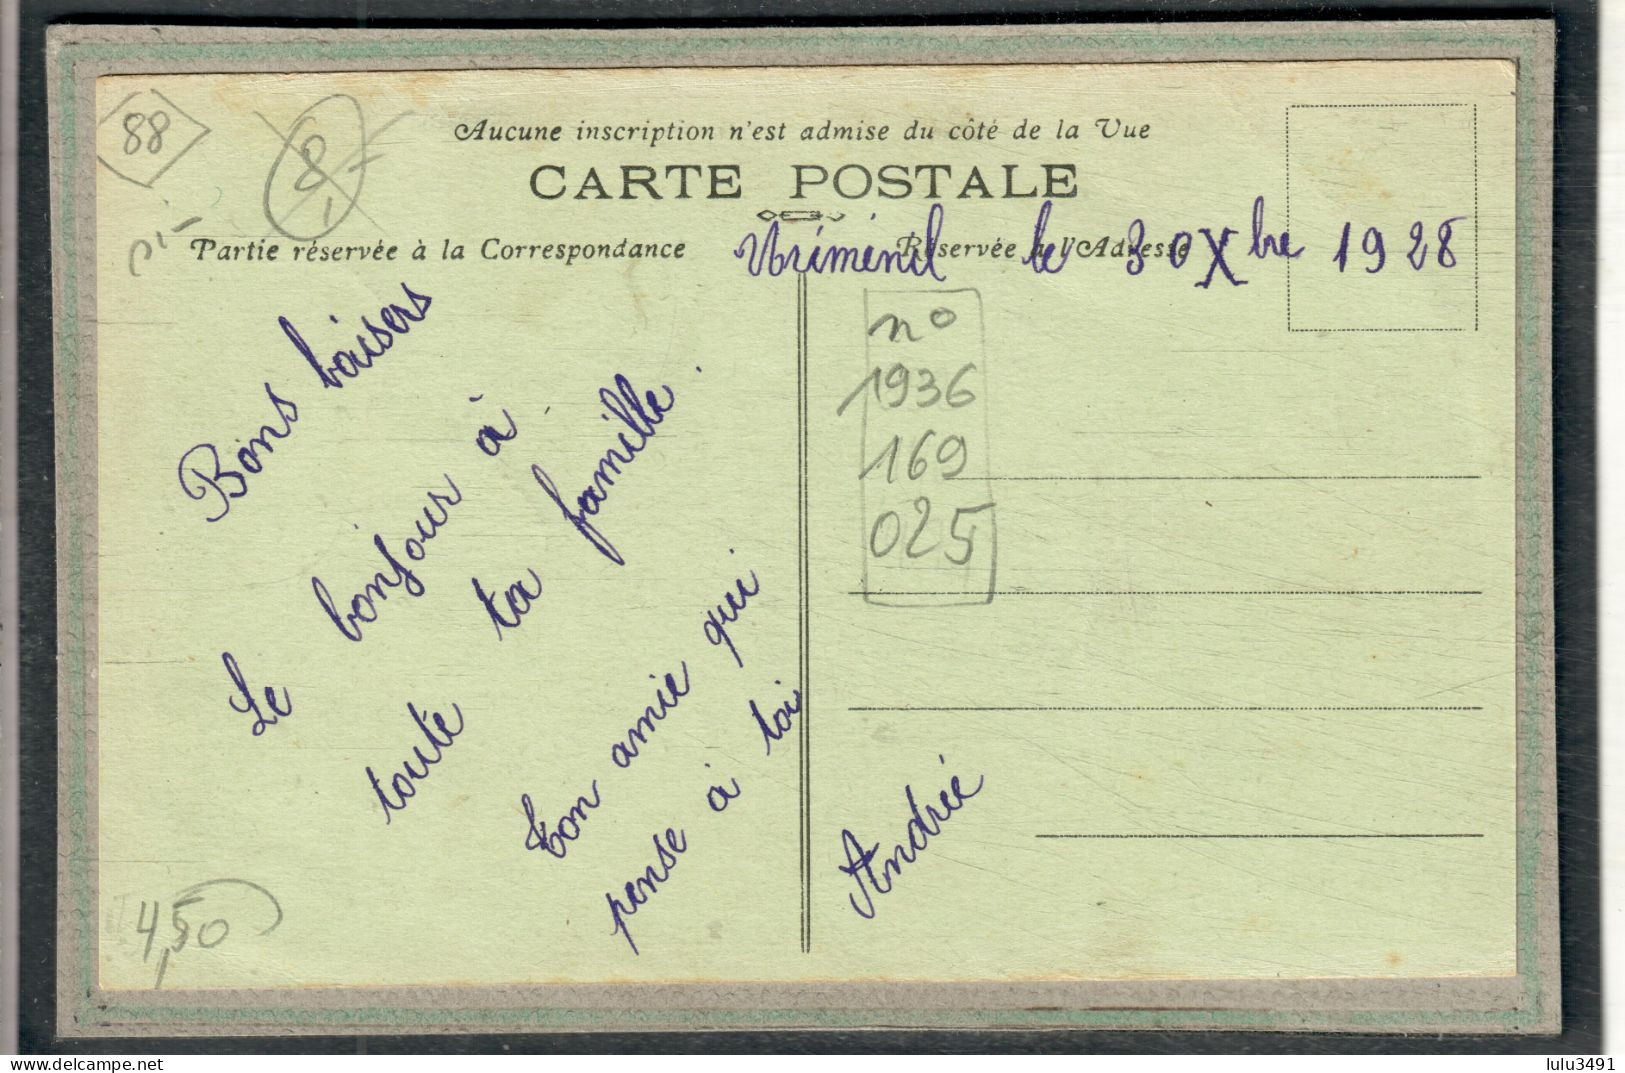 88
8
Aucune inscription n'est admise du côté de la Vue
CARTE POSTALE
Partie réservée à la Correspondance
Réservée à l'Adresse
Uriménil le 30 Xbre 1928
n°
1936
169
025
Bons baisers
Le bonjour à
toute ta famille.
Ton amie qui
pense à toi
Andrée
4,50
www.delcampe.net
lulu3491